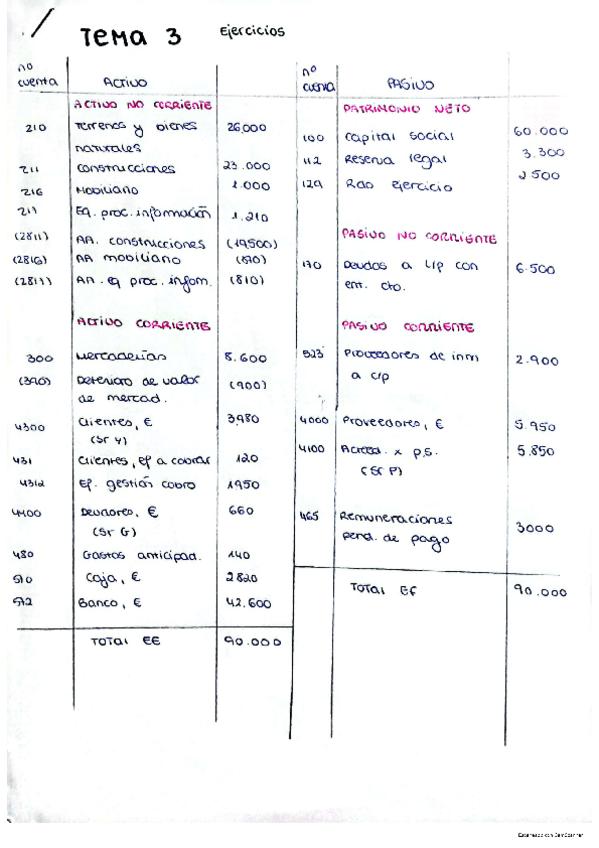 TEMA 3 Ejercicios
nº cuenta ACTIVO
ACTIVO NO CORRIENTE
210 Terrenos y bienes naturales 26,000
211 Construcciones 23.000
216 Mobiliario 1.000
217 Eq. proc. información 1.210
(2811) AA. construcciones (19500)
(2816) AA mobiliario
(2817) AA. eq proc. infom. (810)
ACTIVO CORRIENTE
300 Mercaderías 8.600
(390) Deterioro de valor de mercad. (900)
4300 Clientes, € (Sr Y) 3,980
431 Clientes, ef a cobrar 120
4312 Ef. gestión cobro 1950
4400 Deudores, € (Sr G) 660
480 Gastos anticipad. 140
570 Caja, € 2820
572 Banco, € 42.600
TOTAL EE 90.000
nº cuenta PASIVO
PATRIMONIO NETO
100 Capital social 60.000
112 Reserva legal 3.300
129 Rdo ejercicio 2500
PASIVO NO CORRIENTE
170 Deudas a L/p con ent. cto. 6.500
PASIVO CORRIENTE
523 Proveedores de inm a c/p 2.900
4000 Proveedores, € 5.950
4100 Acreed. x p.s. (Sr P) 5.850
465 Remuneraciones pend. de pago 3000
TOTAL EF 90.000
Escaneado con CamScanner